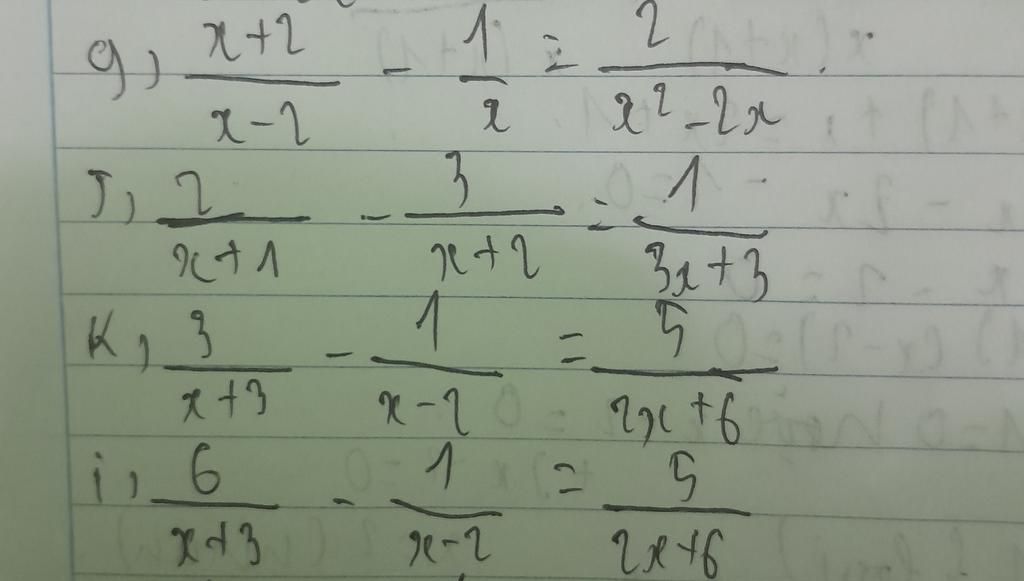 g, (x+2)/(x-2) - 1/x = 2/(x²-2x)
J, 2/(x+1) - 3/(x+2) = 1/(3x+3)
K, 3/(x+3) - 1/(x-2) = 5/(2x+6)
i, 6/(x+3) - 1/(x-2) = 5/(2x+6)